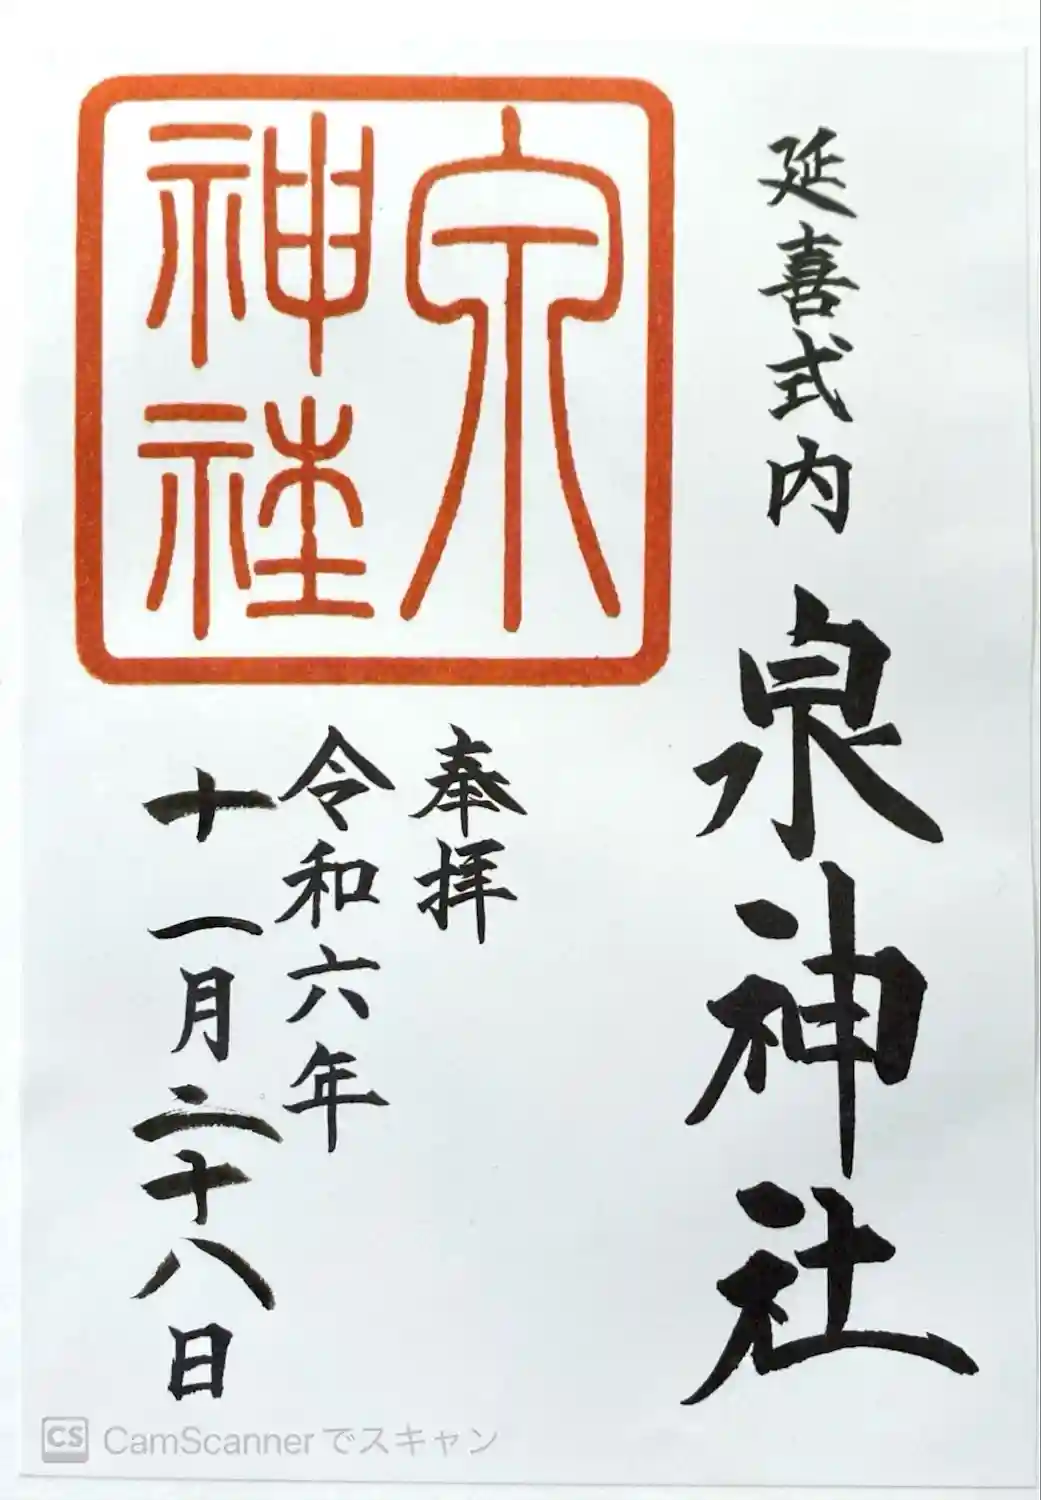 延喜式内 泉神社
泉
神社
奉拝
令和六年
十一月二十八日
CS CamScannerでスキャン